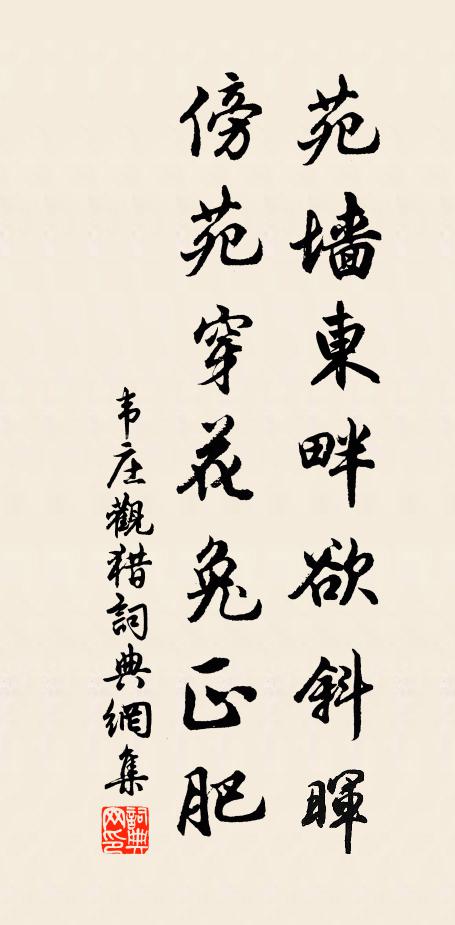 苑墙東畔欲斜暉
傍苑穿花兔正肥
韦庄觀猎詞典網集
詞典网印